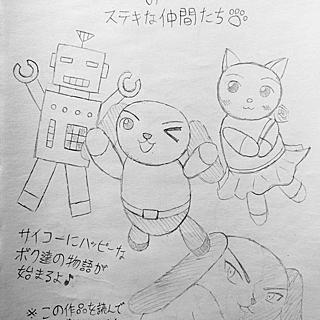 ステキな仲間たち
サイコーにハッピーな
ボク達の物語が
始まるよ♪
※この作品を読んで